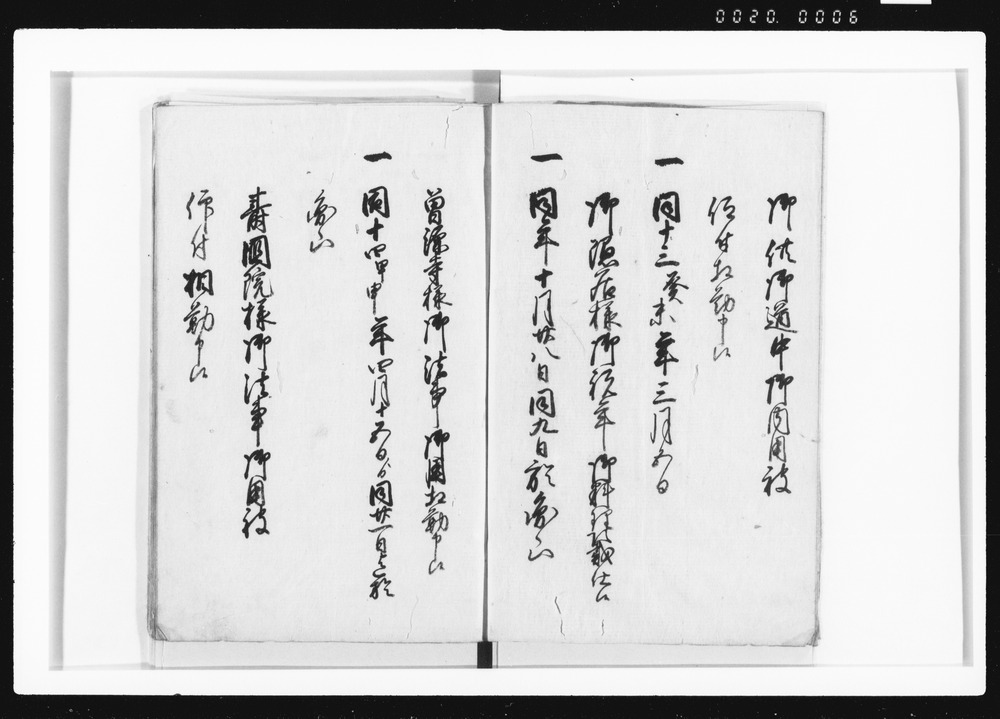 0020.0006
御供御道中御内用被
仰付相勤申候
一 同十三癸未年三月五日
御隠居様御祝年御料理頂戴仕候
一 同年十月廿八日同九日於
曽源寺様御法事御用相勤申候
一 同十四甲申年四月十五日ゟ同廿一日迄於
寿国院様御法事御用被
仰付相勤申候